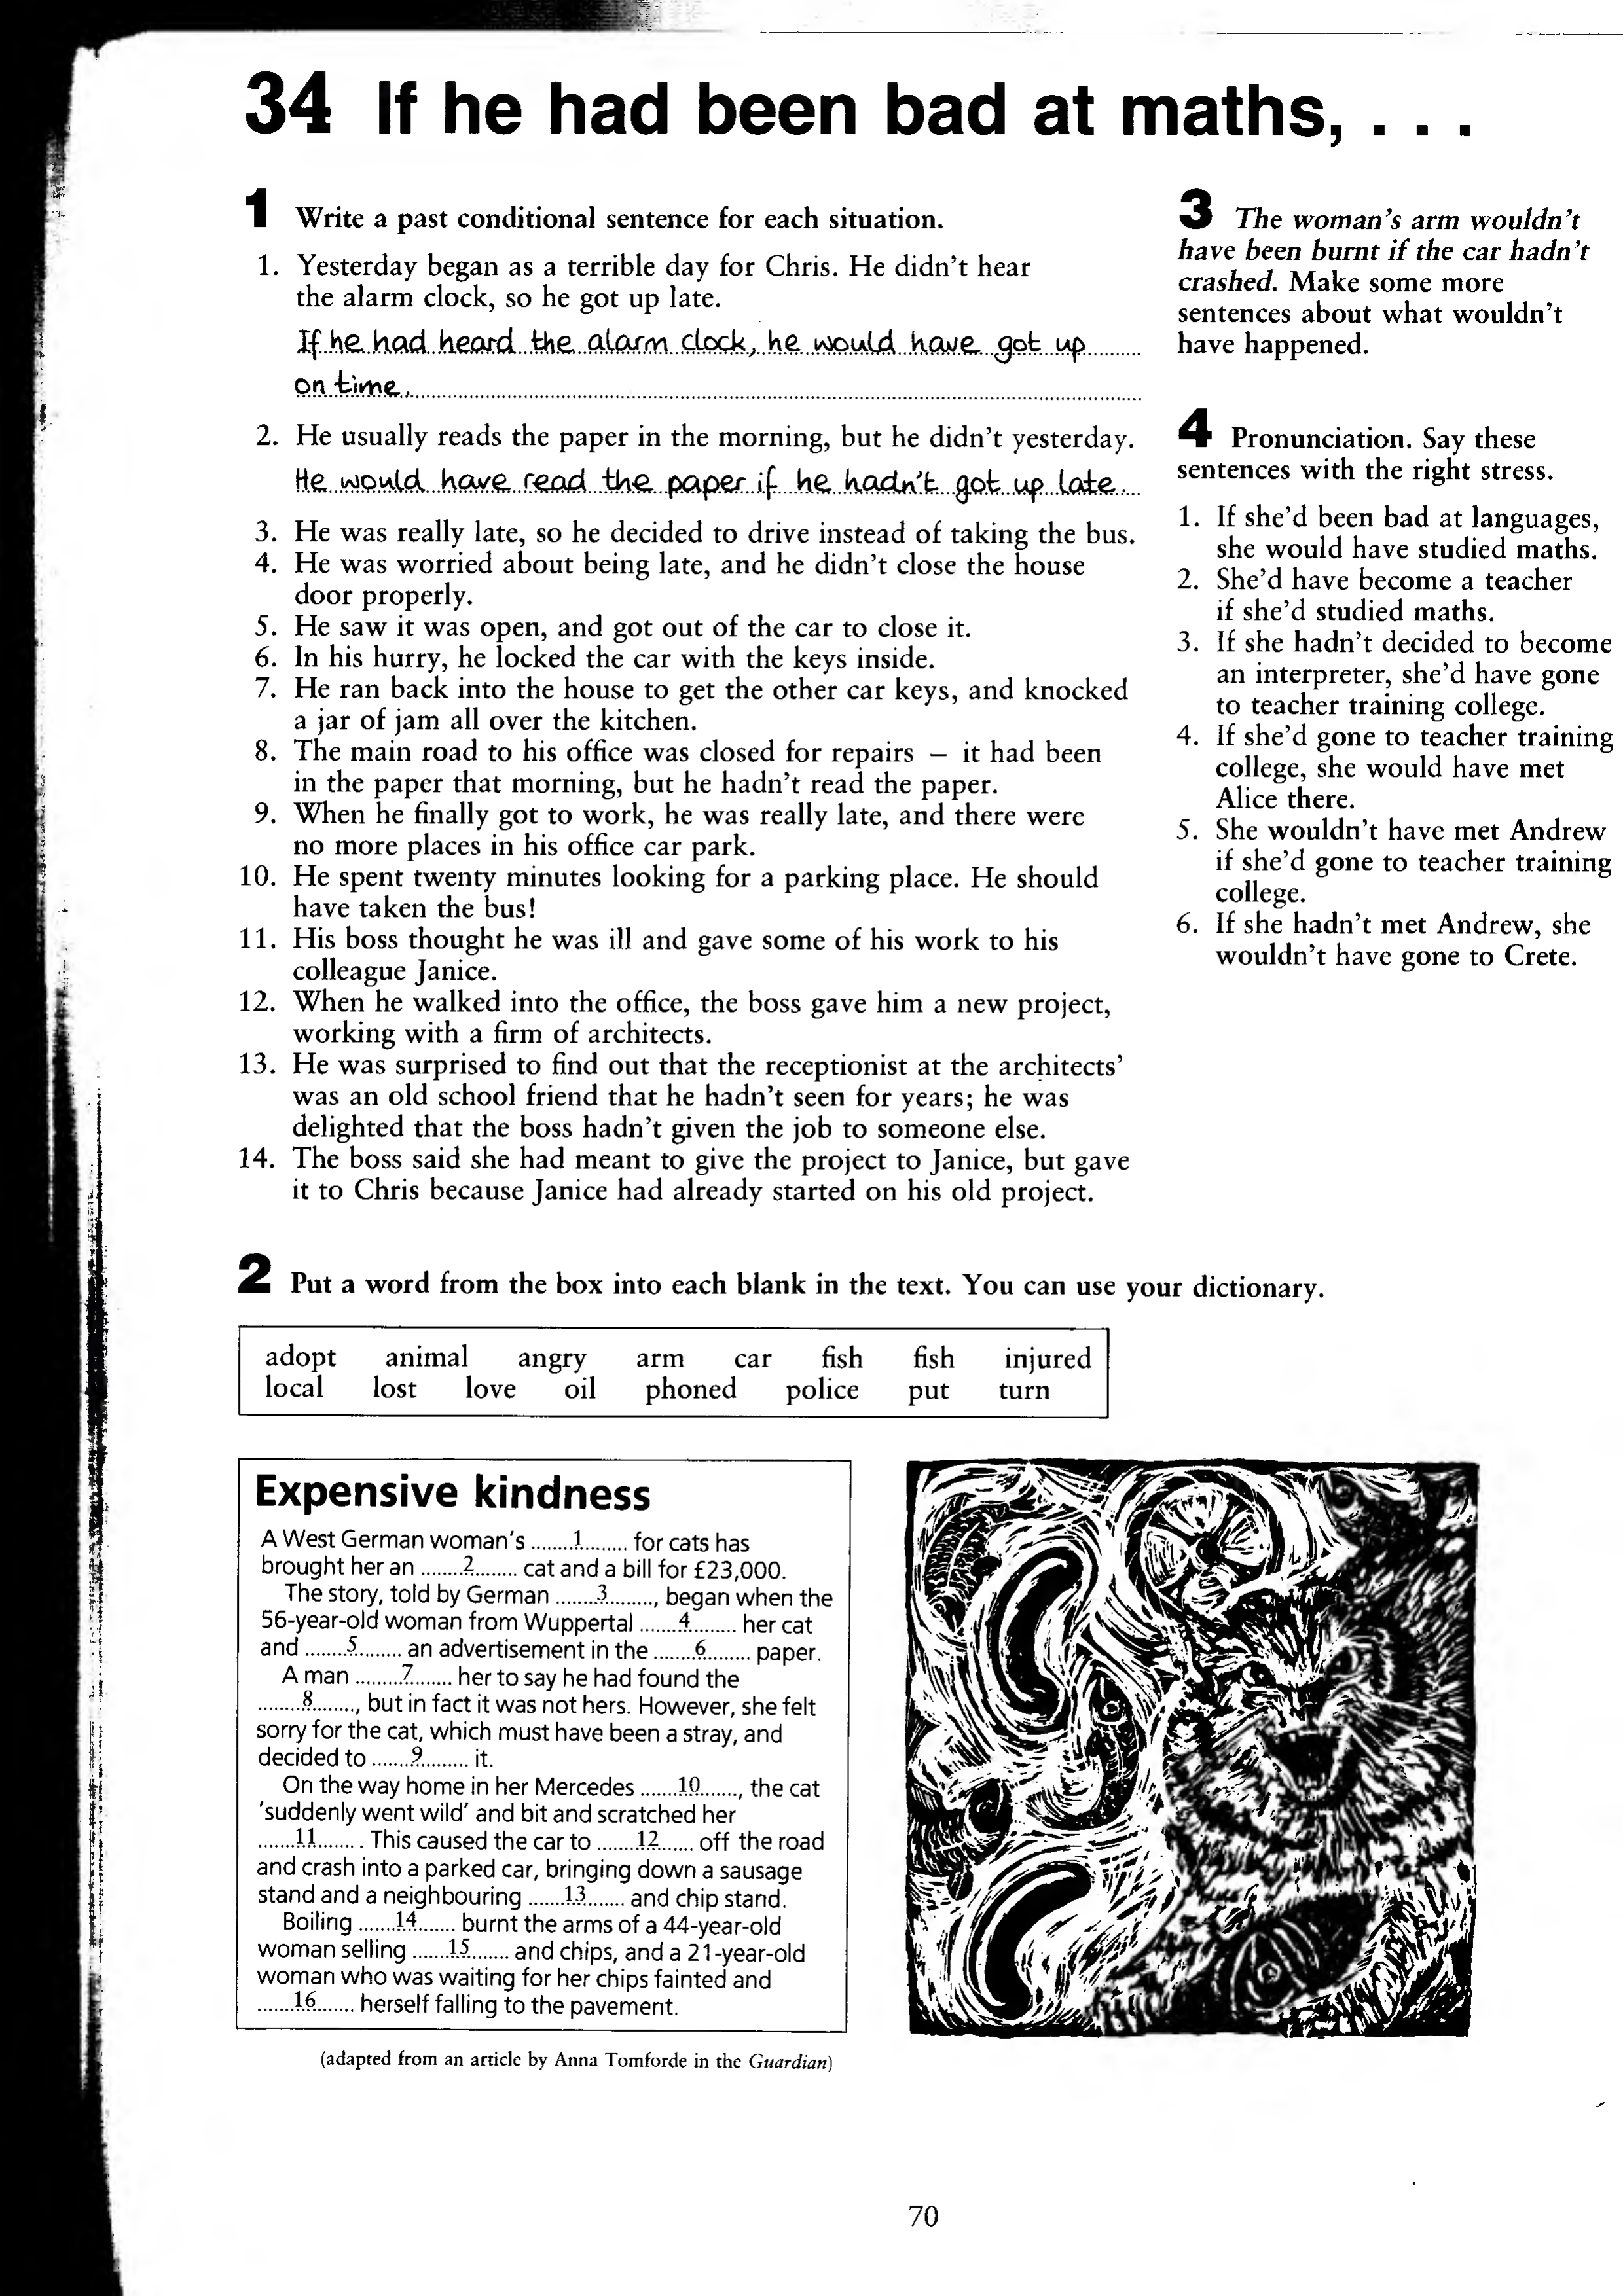 34 If he had been bad at maths, . . .
1 Write a past conditional sentence for each situation.
1. Yesterday began as a terrible day for Chris. He didn't hear
the alarm clock, so he got up late.
If he had heard the alarm clock, he would have got up
on time.
2. He usually reads the paper in the morning, but he didn't yesterday.
He would have read the paper if he hadn't got up late.
3. He was really late, so he decided to drive instead of taking the bus.
4. He was worried about being late, and he didn't close the house
door properly.
5. He saw it was open, and got out of the car to close it.
6. In his hurry, he locked the car with the keys inside.
7. He ran back into the house to get the other car keys, and knocked
a jar of jam all over the kitchen.
8. The main road to his office was closed for repairs – it had been
in the paper that morning, but he hadn't read the paper.
9. When he finally got to work, he was really late, and there were
no more places in his office car park.
10. He spent twenty minutes looking for a parking place. He should
have taken the bus!
11. His boss thought he was ill and gave some of his work to his
colleague Janice.
12. When he walked into the office, the boss gave him a new project,
working with a firm of architects.
13. He was surprised to find out that the receptionist at the architects'
was an old school friend that he hadn't seen for years; he was
delighted that the boss hadn't given the job to someone else.
14. The boss said she had meant to give the project to Janice, but gave
it to Chris because Janice had already started on his old project.
3 The woman's arm wouldn't
have been burnt if the car hadn't
crashed. Make some more
sentences about what wouldn't
have happened.
4 Pronunciation. Say these
sentences with the right stress.
1. If she'd been bad at languages,
she would have studied maths.
2. She'd have become a teacher
if she'd studied maths.
3. If she hadn't decided to become
an interpreter, she'd have gone
to teacher training college.
4. If she'd gone to teacher training
college, she would have met
Alice there.
5. She wouldn't have met Andrew
if she'd gone to teacher training
college.
6. If she hadn't met Andrew, she
wouldn't have gone to Crete.
2 Put a word from the box into each blank in the text. You can use your dictionary.
adopt animal angry arm car fish fish injured
local lost love oil phoned police put turn
Expensive kindness
A West German woman's ........1........ for cats has
brought her an ........2........ cat and a bill for £23,000.
The story, told by German ........3........, began when the
56-year-old woman from Wuppertal ........4........ her cat
and ........5........ an advertisement in the ........6........ paper.
A man ........7........ her to say he had found the
........8........, but in fact it was not hers. However, she felt
sorry for the cat, which must have been a stray, and
decided to ........9........ it.
On the way home in her Mercedes .......10......., the cat
'suddenly went wild' and bit and scratched her
.......11....... . This caused the car to .......12....... off the road
and crash into a parked car, bringing down a sausage
stand and a neighbouring .......13....... and chip stand.
Boiling .......14....... burnt the arms of a 44-year-old
woman selling .......15....... and chips, and a 21-year-old
woman who was waiting for her chips fainted and
.......16....... herself falling to the pavement.
(adapted from an article by Anna Tomforde in the Guardian)
70